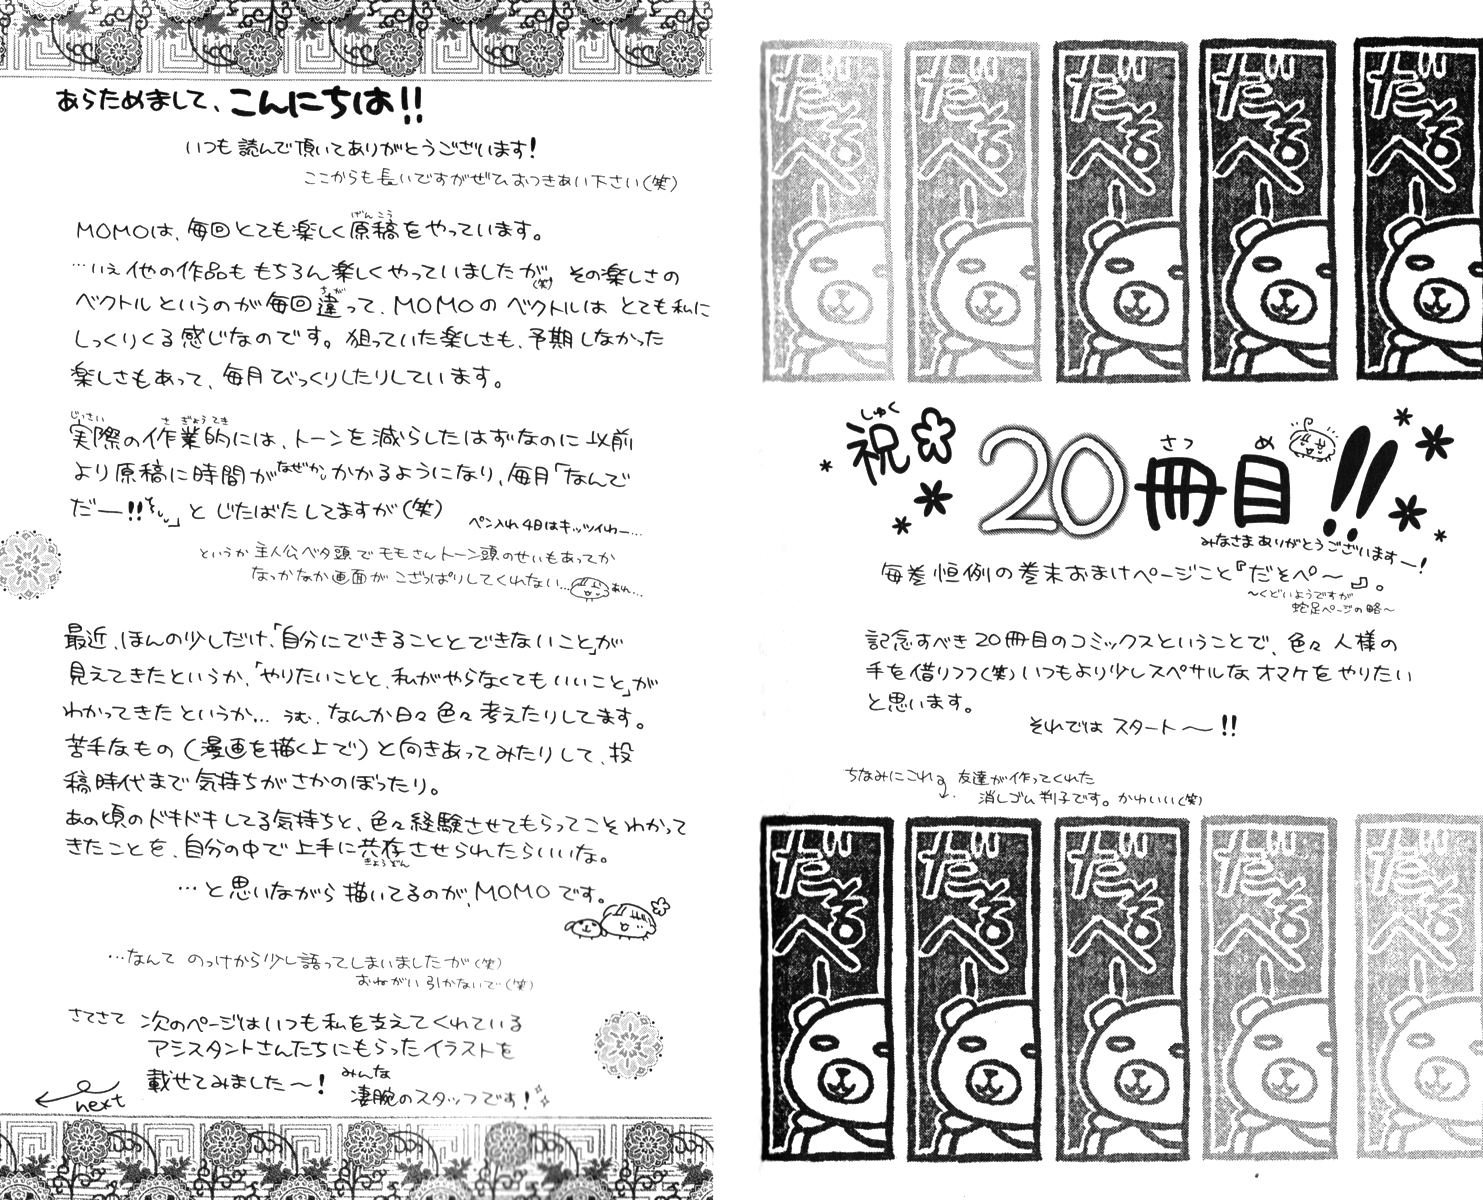 だそぺー
だそぺー
だそぺー
だそぺー
だそぺー
祝 20冊目!!
しゅく さつ め
みなさま ありがとうございますー!
毎巻恒例の巻末おまけページこと『だそぺ〜』。
〜くどいようですが
蛇足ページの略〜
記念すべき20冊目のコミックスということで、色々人様の
手を借りつつ(笑)いつもより少しスペサルなオマケをやりたい
と思います。
それでは スタート〜!!
ちなみにこれ
友達が作ってくれた
消しゴム判子です。かわいい(笑)
だそぺー
だそぺー
だそぺー
だそぺー
だそぺー
あらためまして、こんにちは!!
いつも読んで頂いてありがとうございます!
ここからも長いですがぜひおつきあい下さい(笑)
げんこう
MOMOは、毎回とても楽しく原稿をやっています。
…いえ他の作品ももちろん楽しくやっていましたが(笑) その楽しさの
ちが
ベクトルというのが毎回違って、MOMOのベクトルはとても私に
しっくりくる感じなのです。狙っていた楽しさも、予期しなかった
楽しさもあって、毎月びっくりしたりしています。
じっさい さぎょうてき
実際の作業的には、トーンを減らしたはずなのに以前
より原稿に時間がなぜか。かかるようになり、毎月「なんで
だー!!」とじたばたしてますが(笑)
ペン入れ4日はキッツイわー…
というか主人公ベタ頭でモモさんトーン頭のせいもあってか
なっかなか画面がこざっぱりしてくれない…あれ…
最近、ほんの少しだけ、「自分にできることとできないこと」が
見えてきたというか、「やりたいことと、私がやらなくてもいいこと」が
わかってきたというか… うむ、なんか日々色々考えたりしてます。
苦手なもの(漫画を描く上で)と向きあってみたりして、投
稿時代まで気持ちがさかのぼったり。
あの頃のドキドキしてる気持ちと、色々経験させてもらってこそわかって
きたことを、自分の中で上手に共存させられたらいいな。
きょうぞん
…と思いながら描いてるのが、MOMOです。
…なんてのっけから少し語ってしまいましたが(笑)
おねがい引かないで(笑)
さてさて 次のページはいつも私を支えてくれている
アシスタントさんたちにもらったイラストを
載せてみました〜!
みんな
凄腕のスタッフです!
next